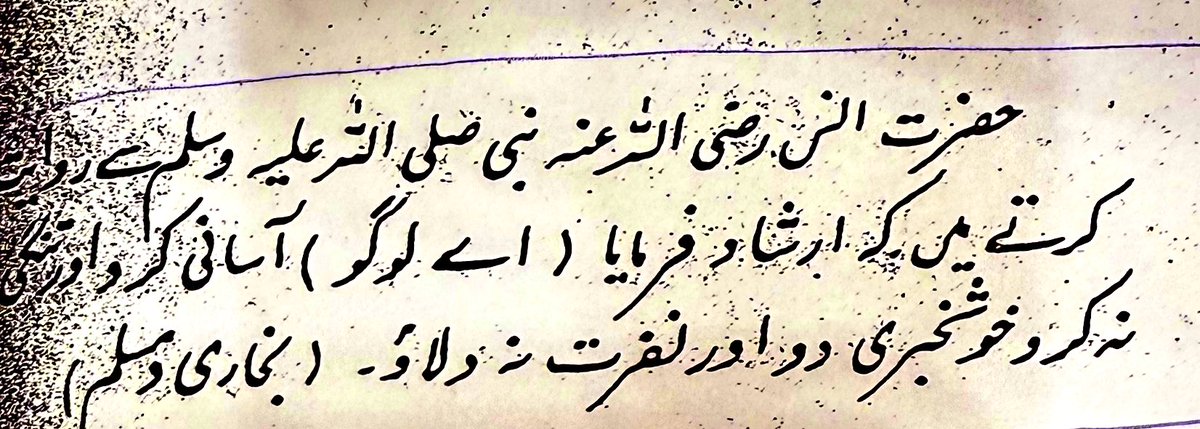 حضرت انس رضی اللہ عنہ نبی صلی اللہ علیہ وسلم سے روایت
کرتے ہیں کہ ارشاد فرمایا ( اے لوگو ) آسانی کرو اور تنگی
نہ کرو خوشخبری دو اور نفرت نہ دلاؤ۔ ( بخاری و مسلم )